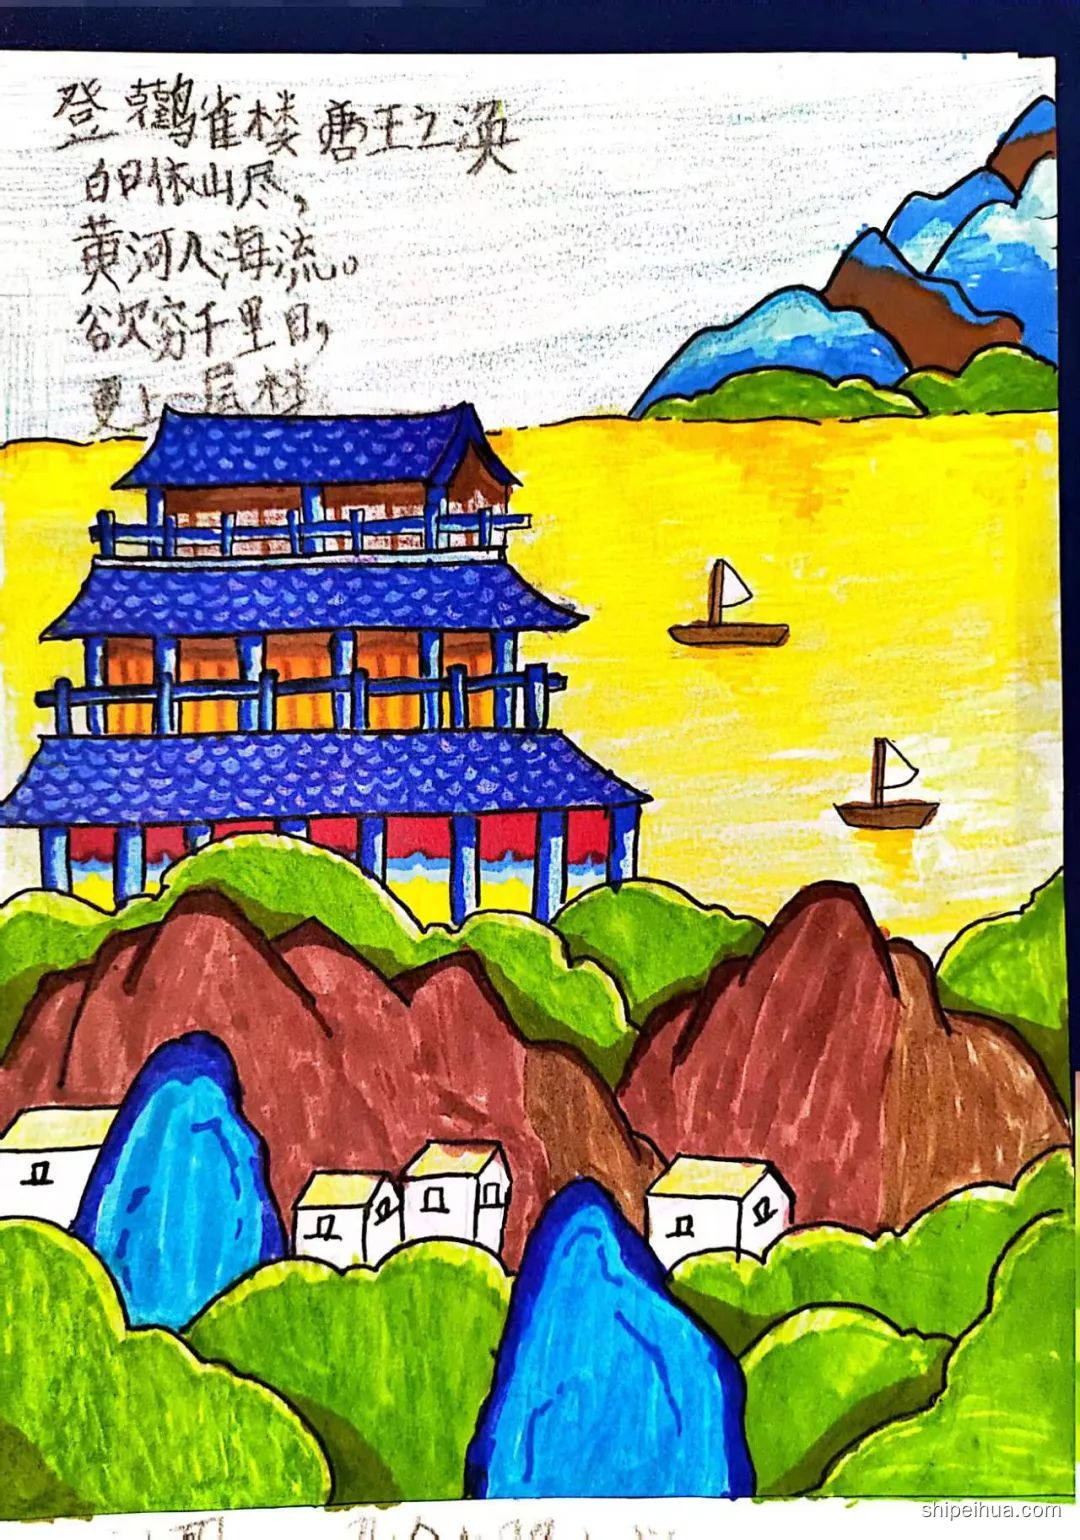 登鹳雀楼 唐王之涣
白日依山尽，
黄河入海流。
欲穷千里目，
更上一层楼
shipeihua.com